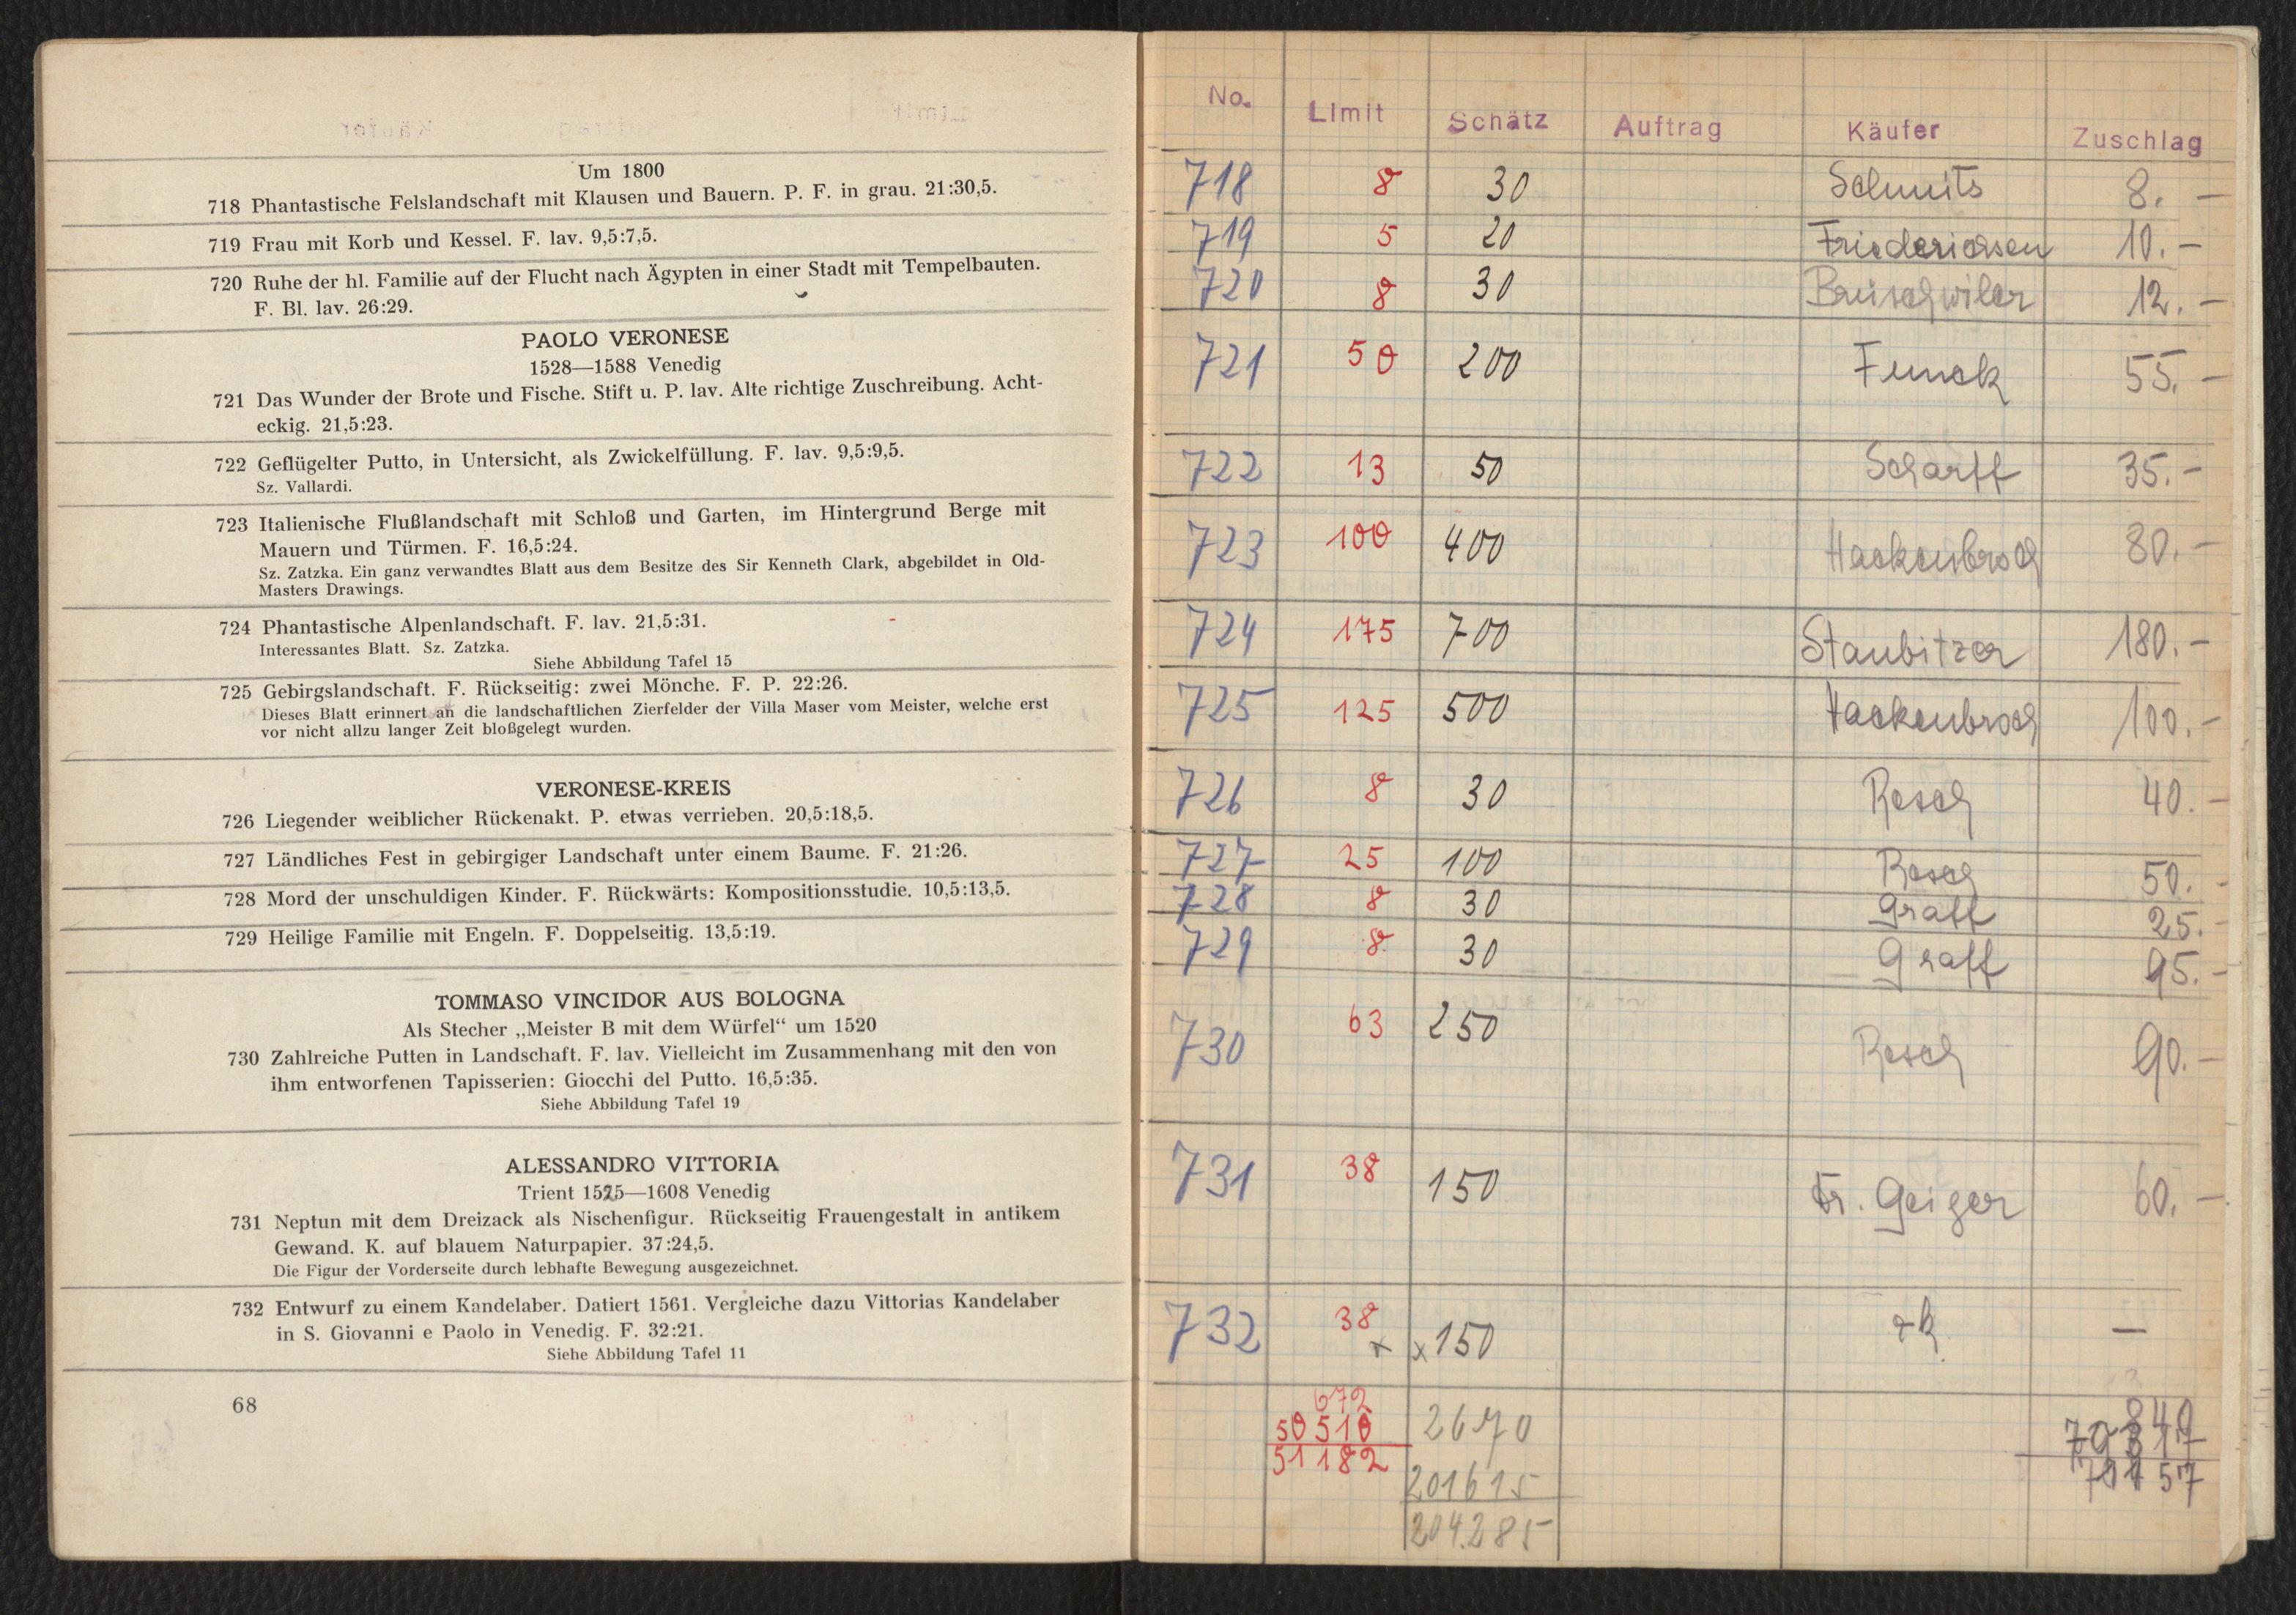 Um 1800
718 Phantastische Felslandschaft mit Klausen und Bauern. P. F. in grau. 21:30,5.
719 Frau mit Korb und Kessel. F. lav. 9,5:7,5.
720 Ruhe der hl. Familie auf der Flucht nach Ägypten in einer Stadt mit Tempelbauten.
F. Bl. lav. 26:29.
PAOLO VERONESE
1528—1588 Venedig
721 Das Wunder der Brote und Fische. Stift u. P. lav. Alte richtige Zuschreibung. Acht-
eckig. 21,5:23.
722 Geflügelter Putto, in Untersicht, als Zwickelfüllung. F. lav. 9,5:9,5.
Sz. Vallardi.
723 Italienische Flußlandschaft mit Schloß und Garten, im Hintergrund Berge mit
Mauern und Türmen. F. 16,5:24.
Sz. Zatzka. Ein ganz verwandtes Blatt aus dem Besitze des Sir Kenneth Clark, abgebildet in Old-
Masters Drawings.
724 Phantastische Alpenlandschaft. F. lav. 21,5:31.
Interessantes Blatt. Sz. Zatzka.
Siehe Abbildung Tafel 15
725 Gebirgslandschaft. F. Rückseitig: zwei Mönche. F. P. 22:26.
Dieses Blatt erinnert an die landschaftlichen Zierfelder der Villa Maser vom Meister, welche erst
vor nicht allzu langer Zeit bloßgelegt wurden.
VERONESE-KREIS
726 Liegender weiblicher Rückenakt. P. etwas verrieben. 20,5:18,5.
727 Ländliches Fest in gebirgiger Landschaft unter einem Baume. F. 21:26.
728 Mord der unschuldigen Kinder. F. Rückwärts: Kompositionsstudie. 10,5:13,5.
729 Heilige Familie mit Engeln. F. Doppelseitig. 13,5:19.
TOMMASO VINCIDOR AUS BOLOGNA
Als Stecher „Meister B mit dem Würfel“ um 1520
730 Zahlreiche Putten in Landschaft. F. lav. Vielleicht im Zusammenhang mit den von
ihm entworfenen Tapisserien: Giocchi del Putto. 16,5:35.
Siehe Abbildung Tafel 19
ALESSANDRO VITTORIA
Trient 1525—1608 Venedig
731 Neptun mit dem Dreizack als Nischenfigur. Rückseitig Frauengestalt in antikem
Gewand. K. auf blauem Naturpapier. 37:24,5.
Die Figur der Vorderseite durch lebhafte Bewegung ausgezeichnet.
732 Entwurf zu einem Kandelaber. Datiert 1561. Vergleiche dazu Vittorias Kandelaber
in S. Giovanni e Paolo in Venedig. F. 32:21.
Siehe Abbildung Tafel 11
68
No. Limit Schätz Auftrag Käufer Zuschlag
718 8 30 Schmits 8.—
719 5 20 Friederichsen 10.—
720 8 30 Bruschwiler 12.—
721 50 200 Funck 55.—
722 13 50 Scharff 35.—
723 100 400 Hackenbroch 80.—
724 175 700 Staubitzer 180.—
725 125 500 Hackenbroch 100.—
726 8 30 Resch 40.—
727 25 100 Resch 50.—
728 8 30 Graff 25.—
729 8 30 Graff 95.—
730 63 250 Resch 90.—
731 38 150 Dr. Geiger 60.—
732 38 x x 150 zk —
672 2670 840
50510
51182
201615
204.285